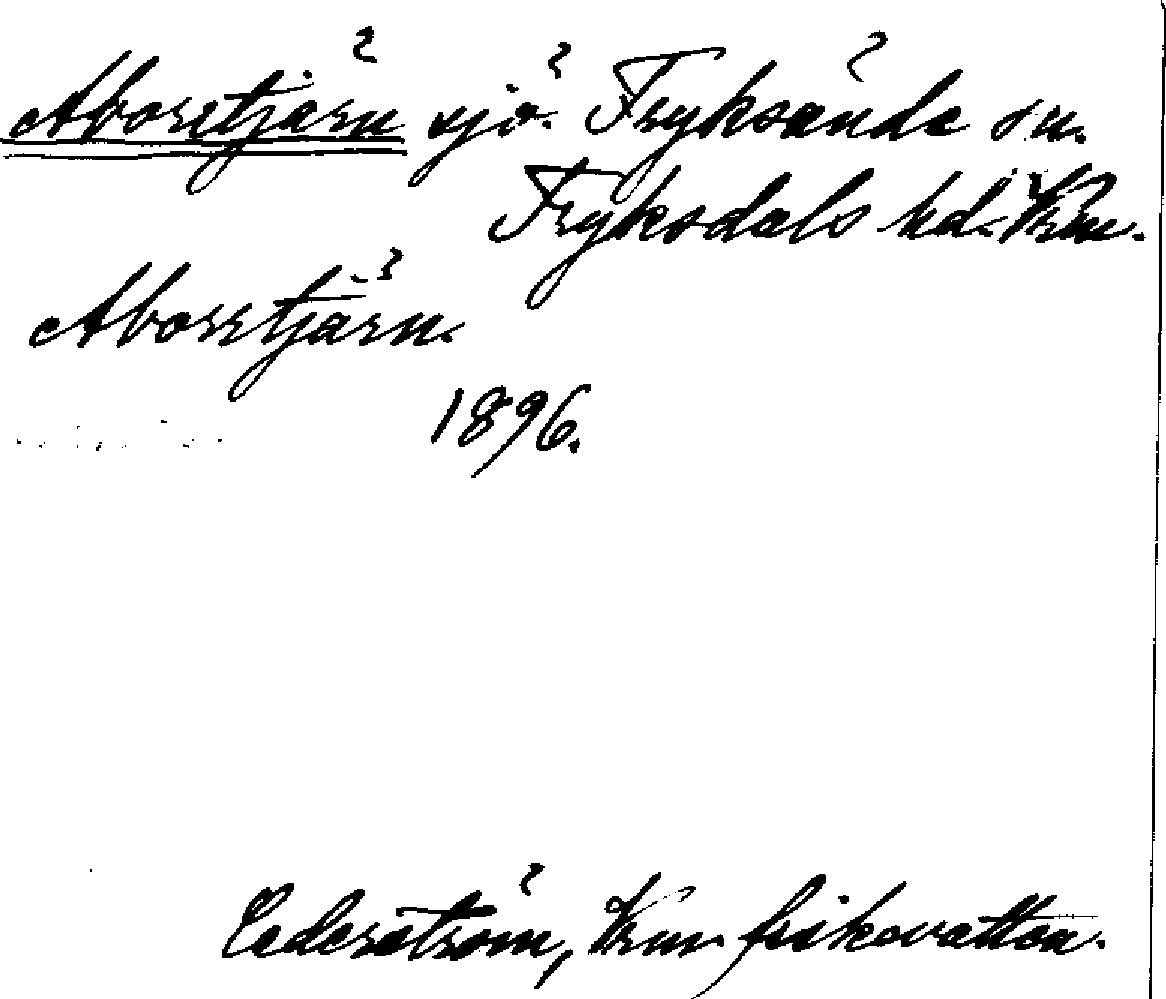 Aborrtjärn sjö. Fryksände sn.
Fryksdals hd. Vrm.
Aborrtjärn.
1896.
Cederström, Vrm fiskevatten.